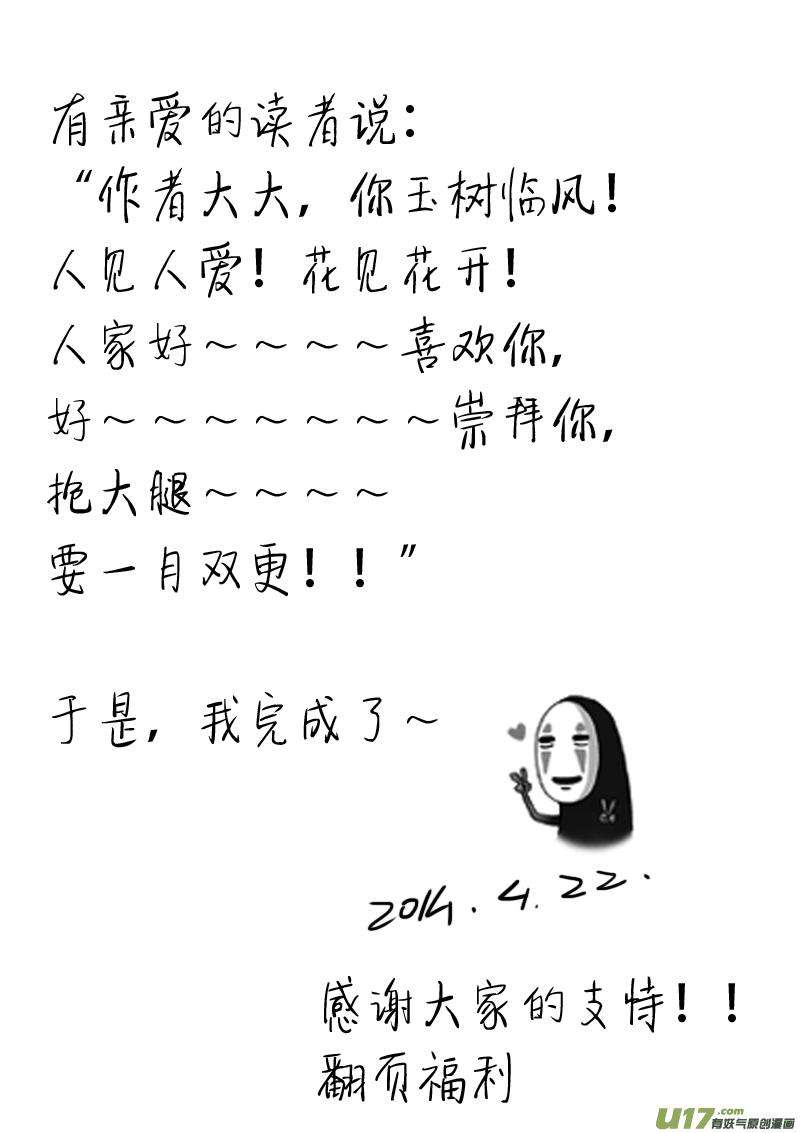 有亲爱的读者说：
“作者大大，你玉树临风！
人见人爱！花见花开！
人家好～～～～喜欢你，
好～～～～～～～崇拜你，
抱大腿～～～～
要一月双更！！”
于是，我完成了～
2014.4.22.
感谢大家的支持！！
翻页福利
U17.com
有妖气原创漫画